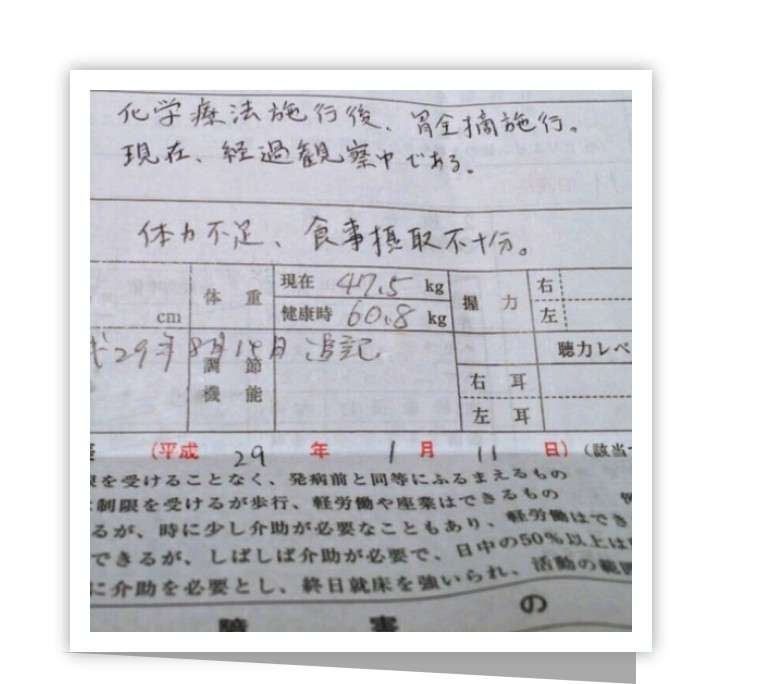 化学療法施行後、胃全摘施行。
現在、経過観察中である。
体力不足、食事摂取不十分。
cm 体重 現在 47.5 kg 握力 右
健康時 60.8 kg 左
29年8月15日 追記
調節機能 聴力レベ
右耳
左耳
(平成 29 年 1 月 11 日) (該当
を受けることなく、発病前と同等にふるまえるもの
制限を受けるが歩行、軽労働や座業はできるもの 例
るが、時に少し介助が必要なこともあり、軽労働はでき
できるが、しばしば介助が必要で、日中の50%以上は
に介助を必要とし、終日就床を強いられ、活動の範囲
障害の